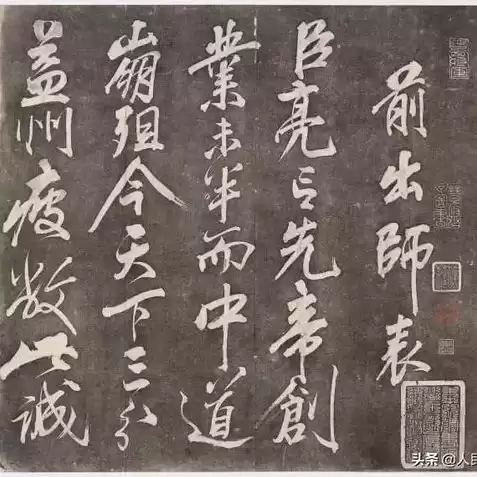 前出師表
臣亮言先帝創
業未半而中道
崩殂今天下三分
益州疲敝此誠
头条 @人民